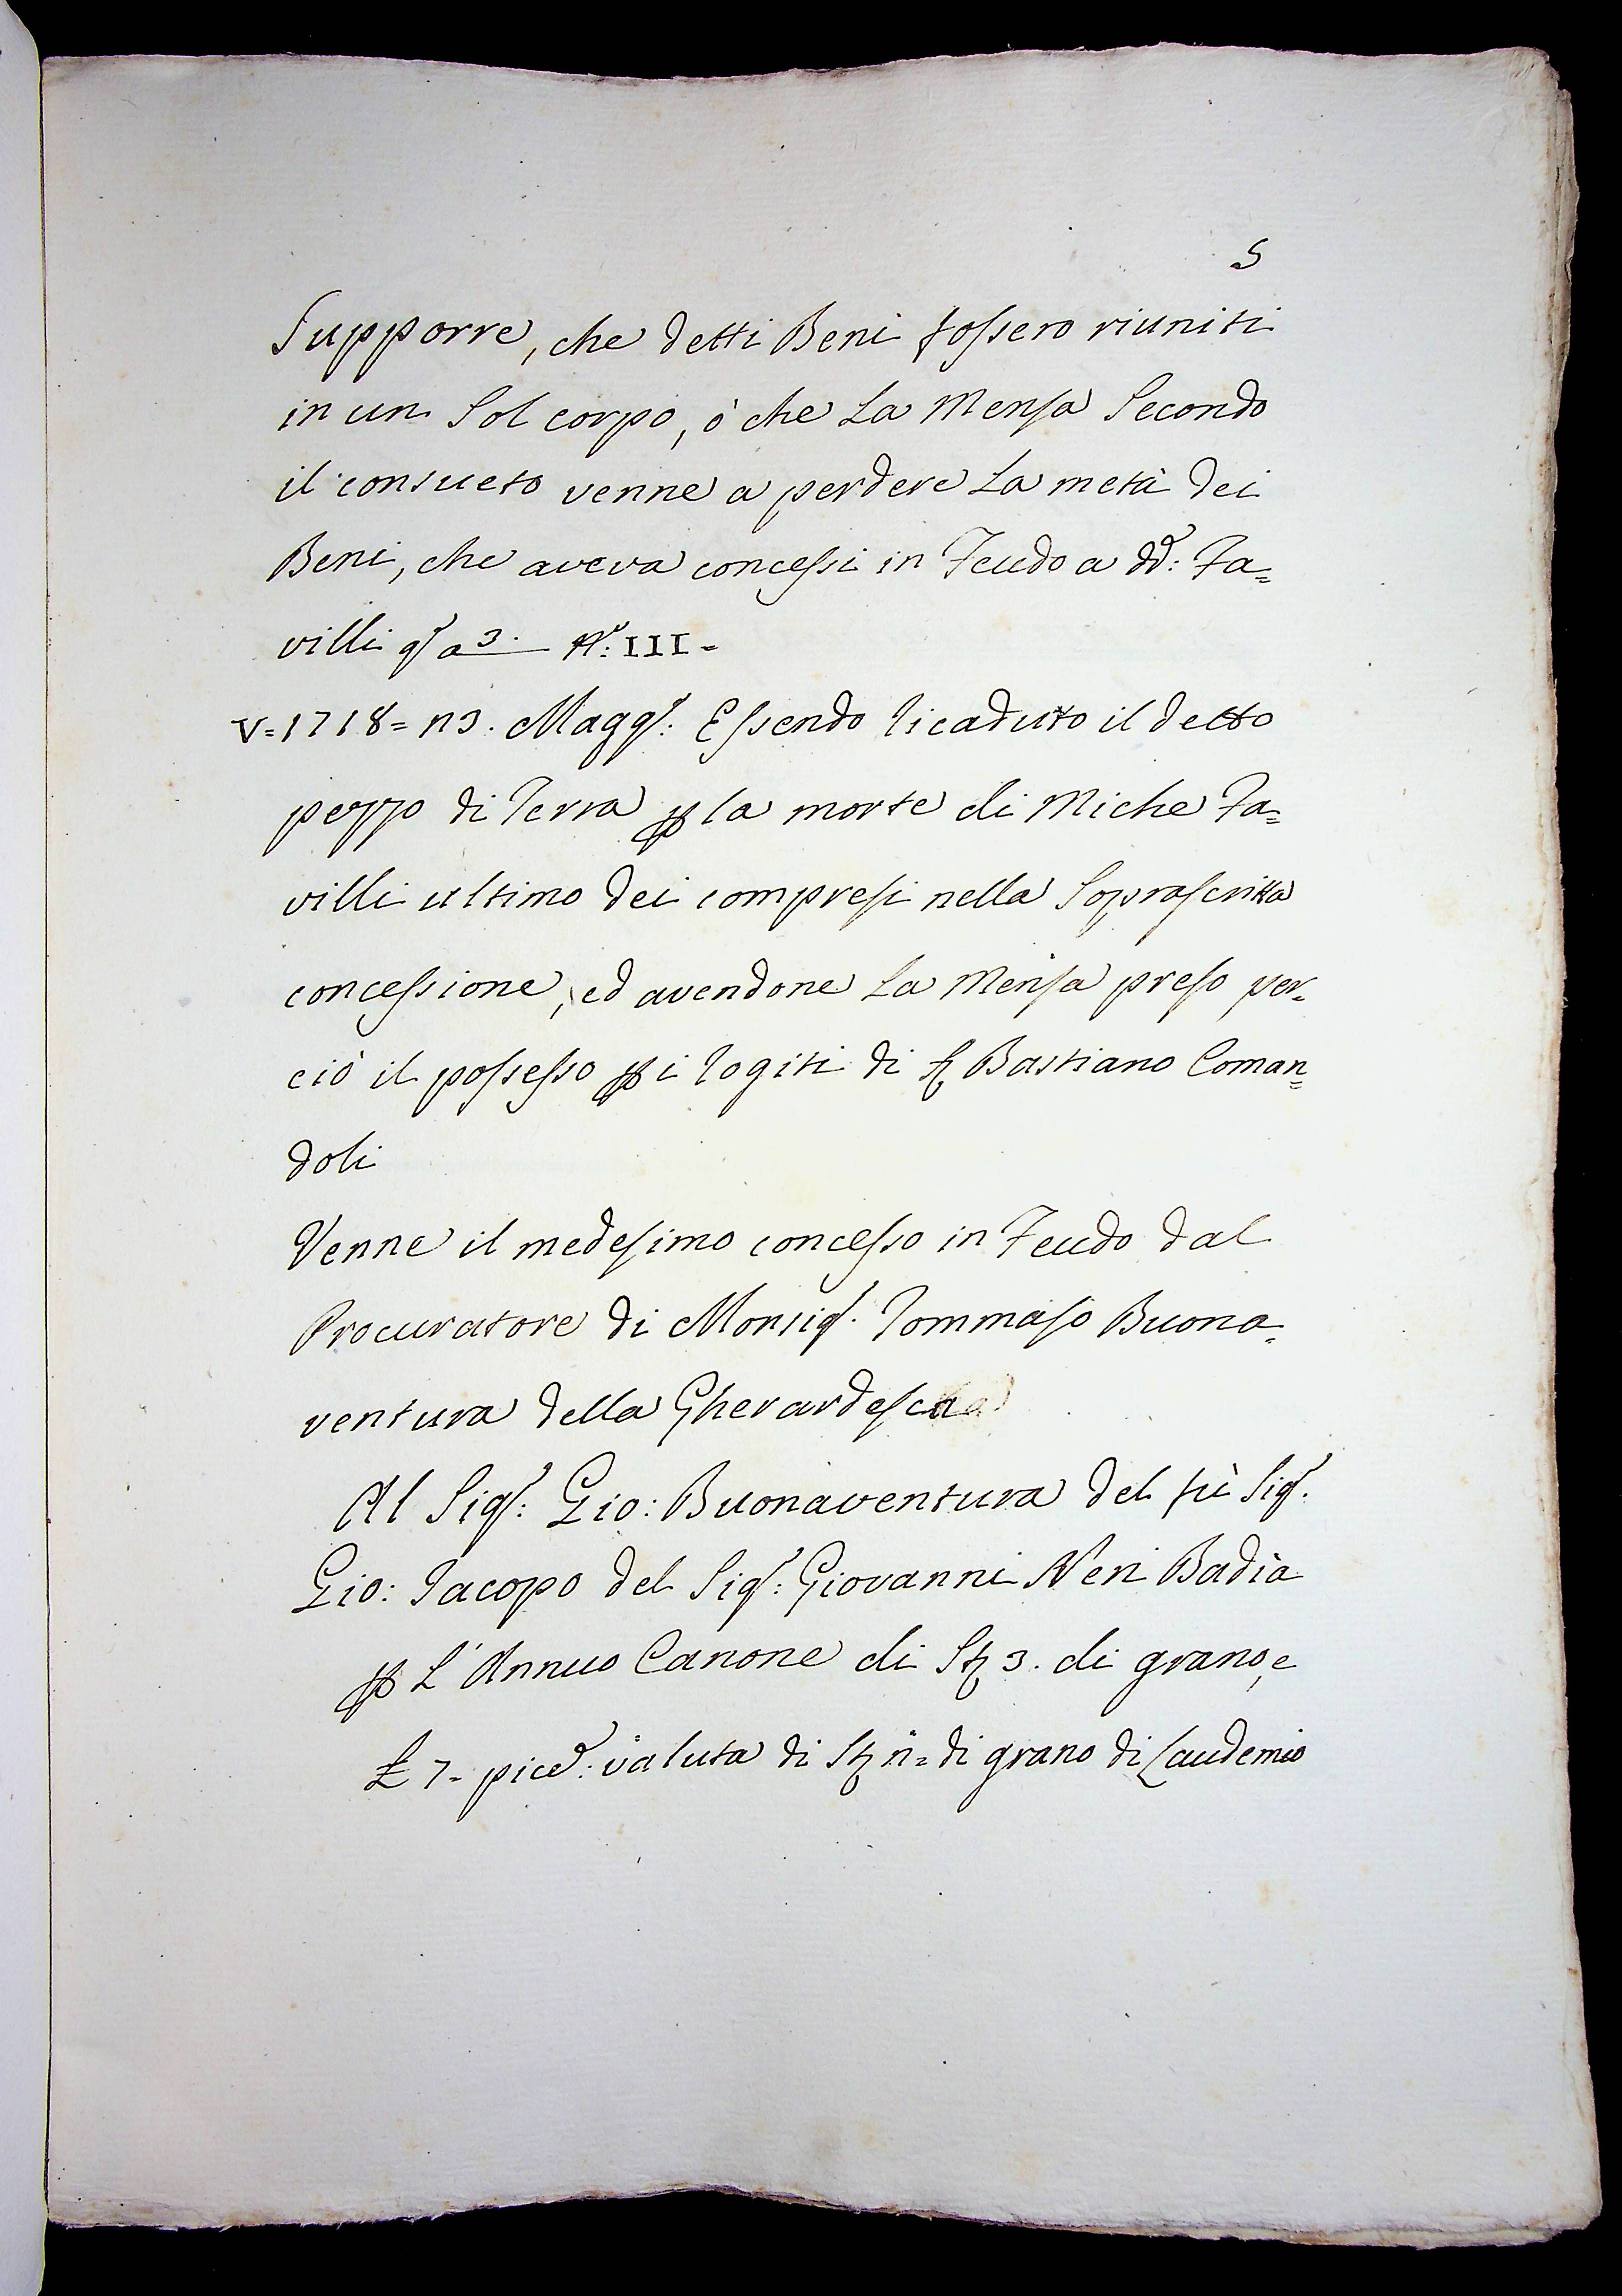 5
Supporre, che detti Beni fossero riuniti
in un Sol corpo, ò che La Mensa Secondo
il consueto venne a perdere La metà dei
Beni, che aveva concessi in Feudo a dd: Fa=
villi q a 3. N: III=
V=1718= 13. Magg: Essendo ricaduto il detto
pezzo di Terra p la morte di Miche Fa=
villi ultimo dei compresi nella Soprascritta
concessione, ed avendone La Mensa preso per=
ciò il possesso p i rogiti di S Bastiano Coman=
doli
Venne il medesimo concesso in Feudo dal
Procuratore di Monsig. Tommaso Buona=
ventura della Gherardesca
Al Sig: Gio: Buonaventura del fù Sig.
Gio: Jacopo del Sig: Giovanni Neri Badia
p L'Annuo Canone di St 3. di grano, e
£ 7= picc: valuta di St 1= di grano di Laudemio